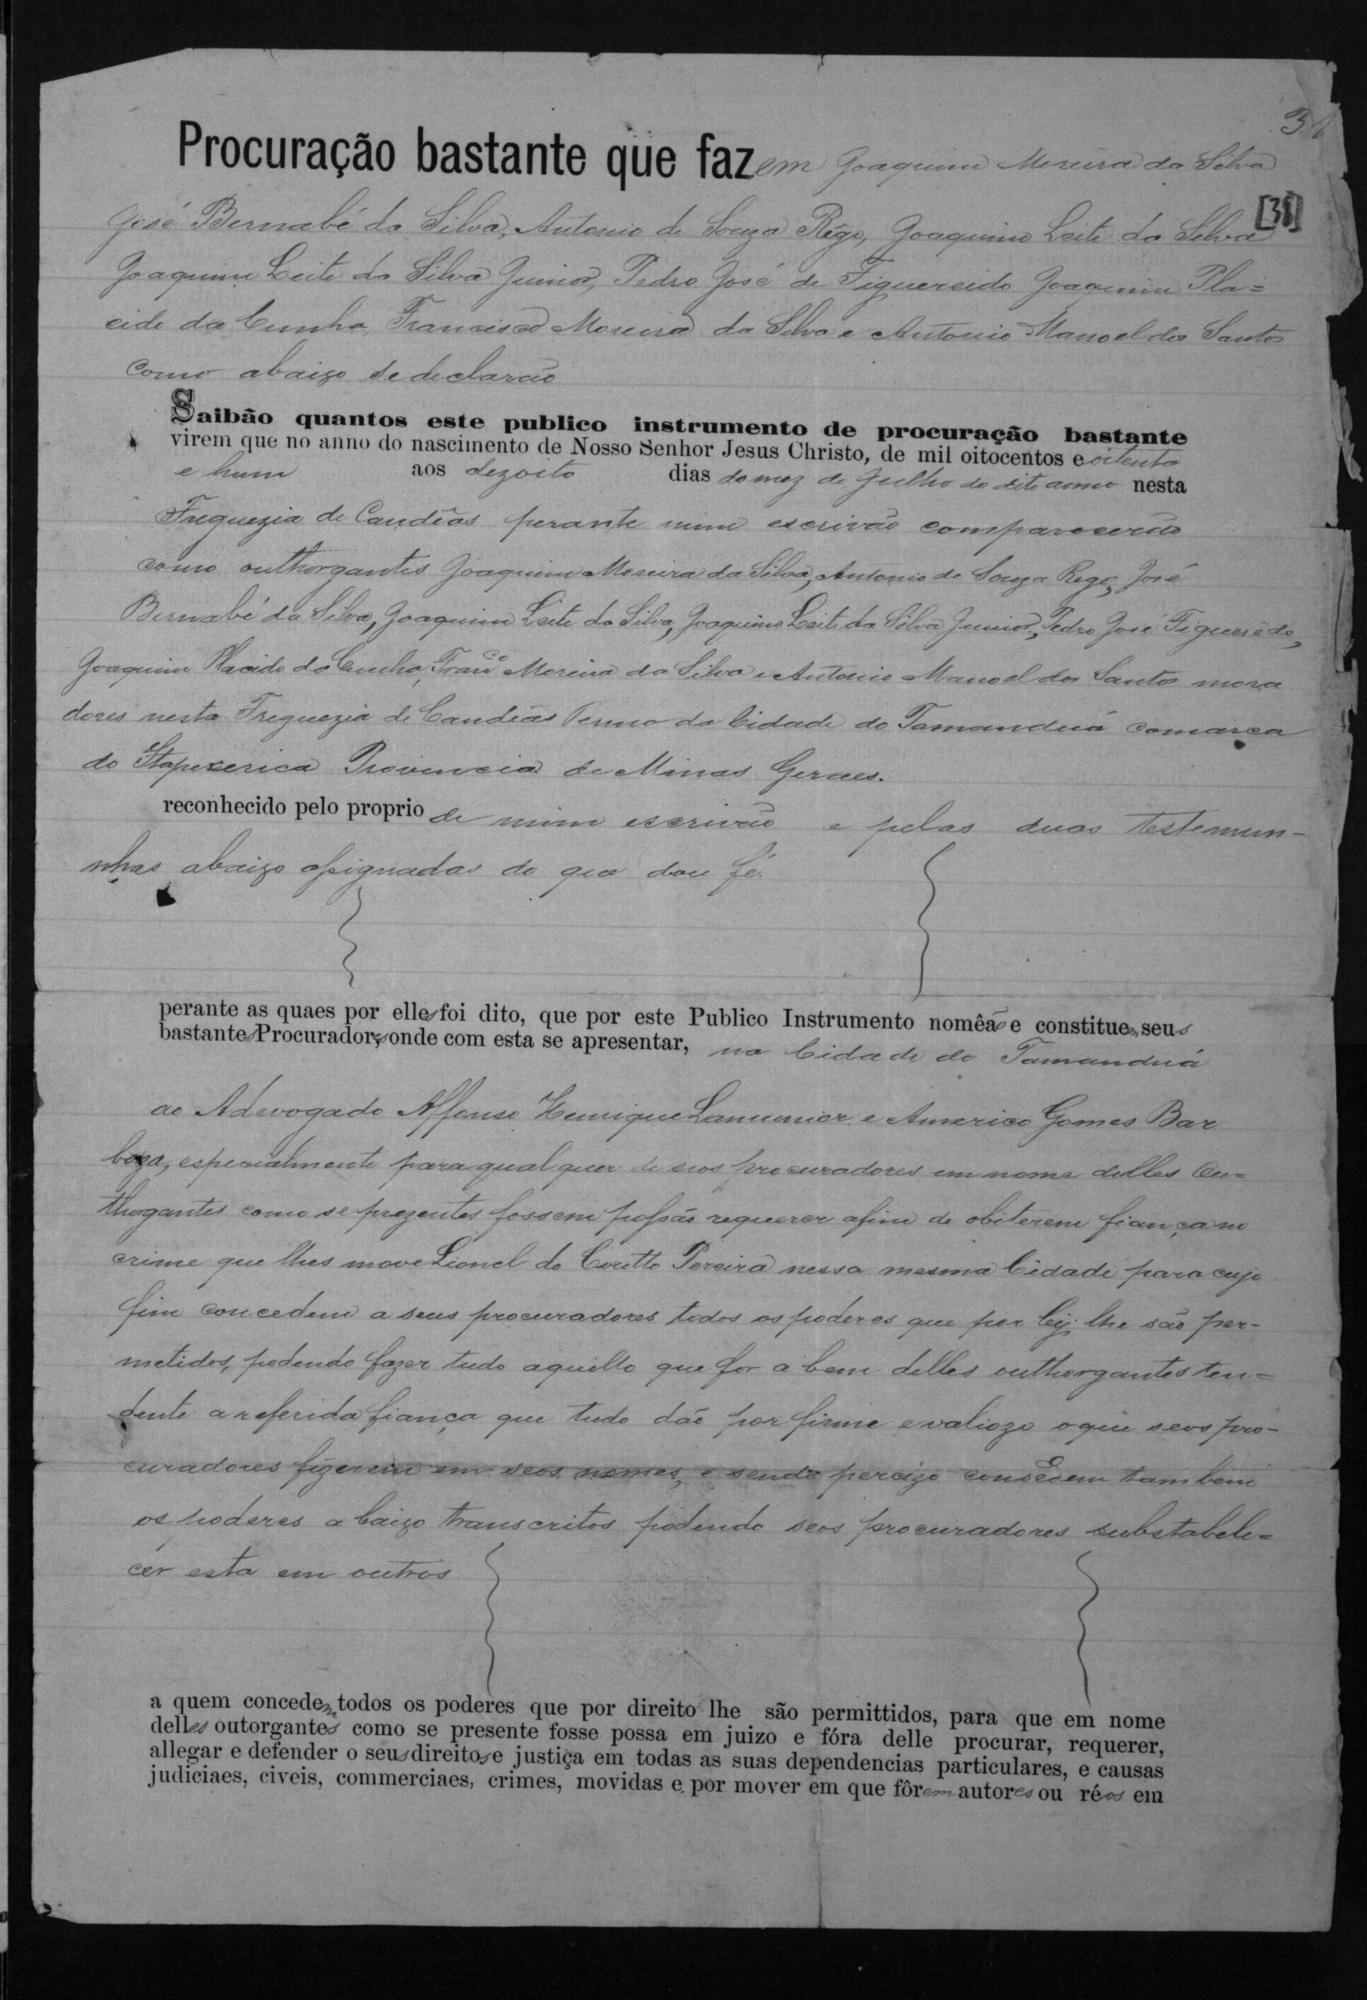 Procuração bastante que fazem Joaquim Moreira da Silva
[31]
José Bernabé da Silva, Antonio de Souza Rêgo, Joaquim Leite da Silva
Joaquim Leite da Silva Junior, Pedro José de Figuereido Joaquim Pla=
cido da Cunha Francisco Moreira da Silva e Antonio Manoel dos Santos
como abaixo se declarão
Saibão quantos este publico instrumento de procuração bastante
virem que no anno do nascimento de Nosso Senhor Jesus Christo, de mil oitocentos e oitenta
e hum aos dezoito dias do mez de Julho do dito anno nesta
Freguezia de Candêas perante mim escrivão comparecerão
como outhorgantes Joaquim Moreira da Silva, Antonio de Souza Rego, José
Bernabé da Silva, Joaquim Leite da Silva, Joaquim Leite da Silva Junior, Pedro José Figueredo,
Joaquim Placido da Cunha, Franco Moreira da Silva e Antonio Manoel dos Santos mora
dores nesta Freguezia de Candêas Termo da Cidade do Tamanduá comarca
do Itapecerica Provincia de Minas Geraes.
reconhecido pelo proprio de mim escrivão e pelas duas testemun-
nhas abaixo assignadas do que dou fé.
perante as quaes por elles foi dito, que por este Publico Instrumento nomêão e constituem seus
bastantes Procuradores, onde com esta se apresentar, na Cidade do Tamanduá
ao Advogado Affonso Henrique Lamunier e Americo Gomes Bar
boza, especialmente para qualquer de seos procuradores em nome delles Ou=
thorgantes como se prezentes fossem possão requerer afim de obiterem fiança em
crime que lhes move Lionel do Coutto Pereira nessa mesma Cidade para cujo
fim concedem a seus procuradores todos os poderes que por lei lhe são per-
metidos, podendo fazer tudo aquillo que for a bem delles outhorgantes ten=
dente a referida fiança que tudo dão por firme e valiozo o que seos pro-
curadores fizerem em seos nomes, e sendo percizo consedem tambem
os poderes abaixo transcritos podendo seos procuradores substabele=
cer esta em outros
a quem concedem todos os poderes que por direito lhe são permittidos, para que em nome
delles outorgantes como se presente fosse possa em juizo e fóra delle procurar, requerer,
allegar e defender o seus direitos e justiça em todas as suas dependencias particulares, e causas
judiciaes, civeis, commerciaes, crimes, movidas e por mover em que fôrem autores ou réos em